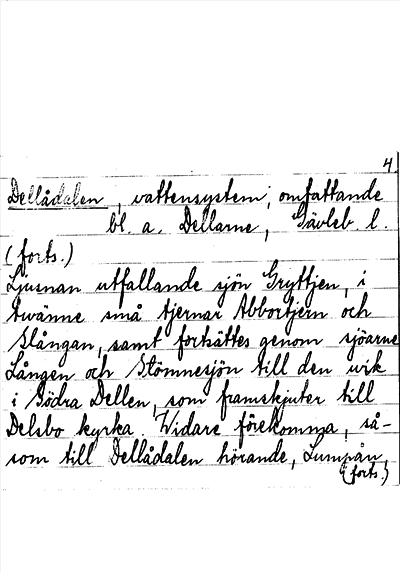 4.
Dellådalen, vattensystem, omfattande
bl. a. Dellarne, Gävleb. l.
(forts.)
Ljusnan utfallande sjön Gryttjen, i
twänne små tjernar Abbortjern och
Slången, samt fortsättes genom sjöarne
Lången och Stömnesjön till den wik
i Södra Dellen, som framskjuter till
Delsbo kyrka. Widare förekomma, så-
som till Dellådalen hörande, Lumpån,
(forts.)